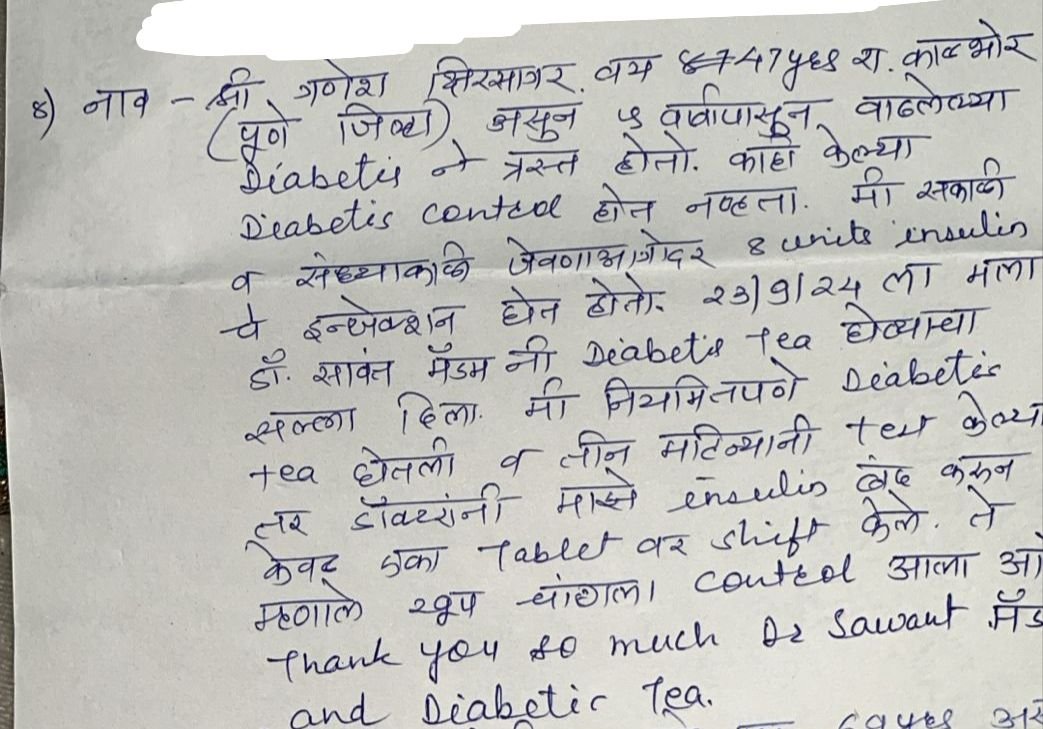 ४) नाव - श्री गणेश क्षिरसागर. वय 47 yrs रा. काळभोर
(पूणे जिल्हा) असुन ५ वर्षापासून वाढलेल्या
Diabetis ने त्रस्त होतो. काही केल्या
Diabetis control होत नव्हता. मी सकाळी
व संध्याकाळी जेवणाआगोदर 8 units insulin
चे इन्जेक्शन घेत होतो. २३/9/२4 ला मला
डॉ. सावंत मॅडम नी Diabetis Tea घेण्याचा
सल्ला दिला. मी नियमितपणे Diabetic
tea घेतली व तीन महिन्यानी test केल्या
तर डॉक्टरांनी माझे insulin बंद करुन
केवळ एका Tablet वर shift केले. ते
म्हणाले खूप चांगला control आला
Thank you so much Dr Sawant मॅड
and Diabetic Tea.